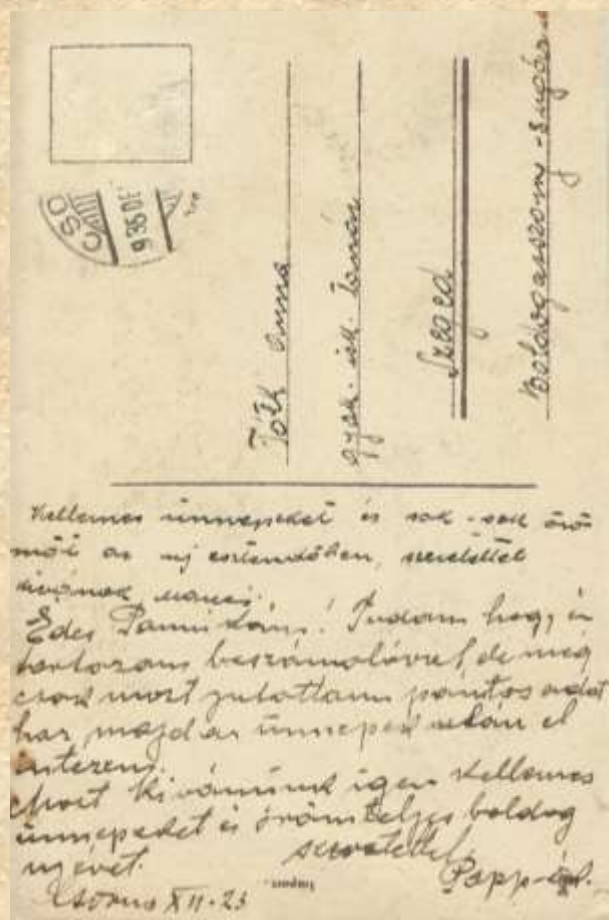 Tóth Anna
gyak. isk. tanár
Szeged
Boldogasszony-sugár
CSO
936 DE
Kellemes ünnepeket és sok-sok örö
möt az uj esztendőben, szeretettel
kivánok
Édes Tudom hogy én
tartozom beszámolóval, de még
csak most jutottam pontos adat
hoz, majd az ünnepek után el
intézem.
Most kivánunk igen kellemes
ünnepeket és örömteljes boldog
ujévet. szeretettel
Papp
XII.23